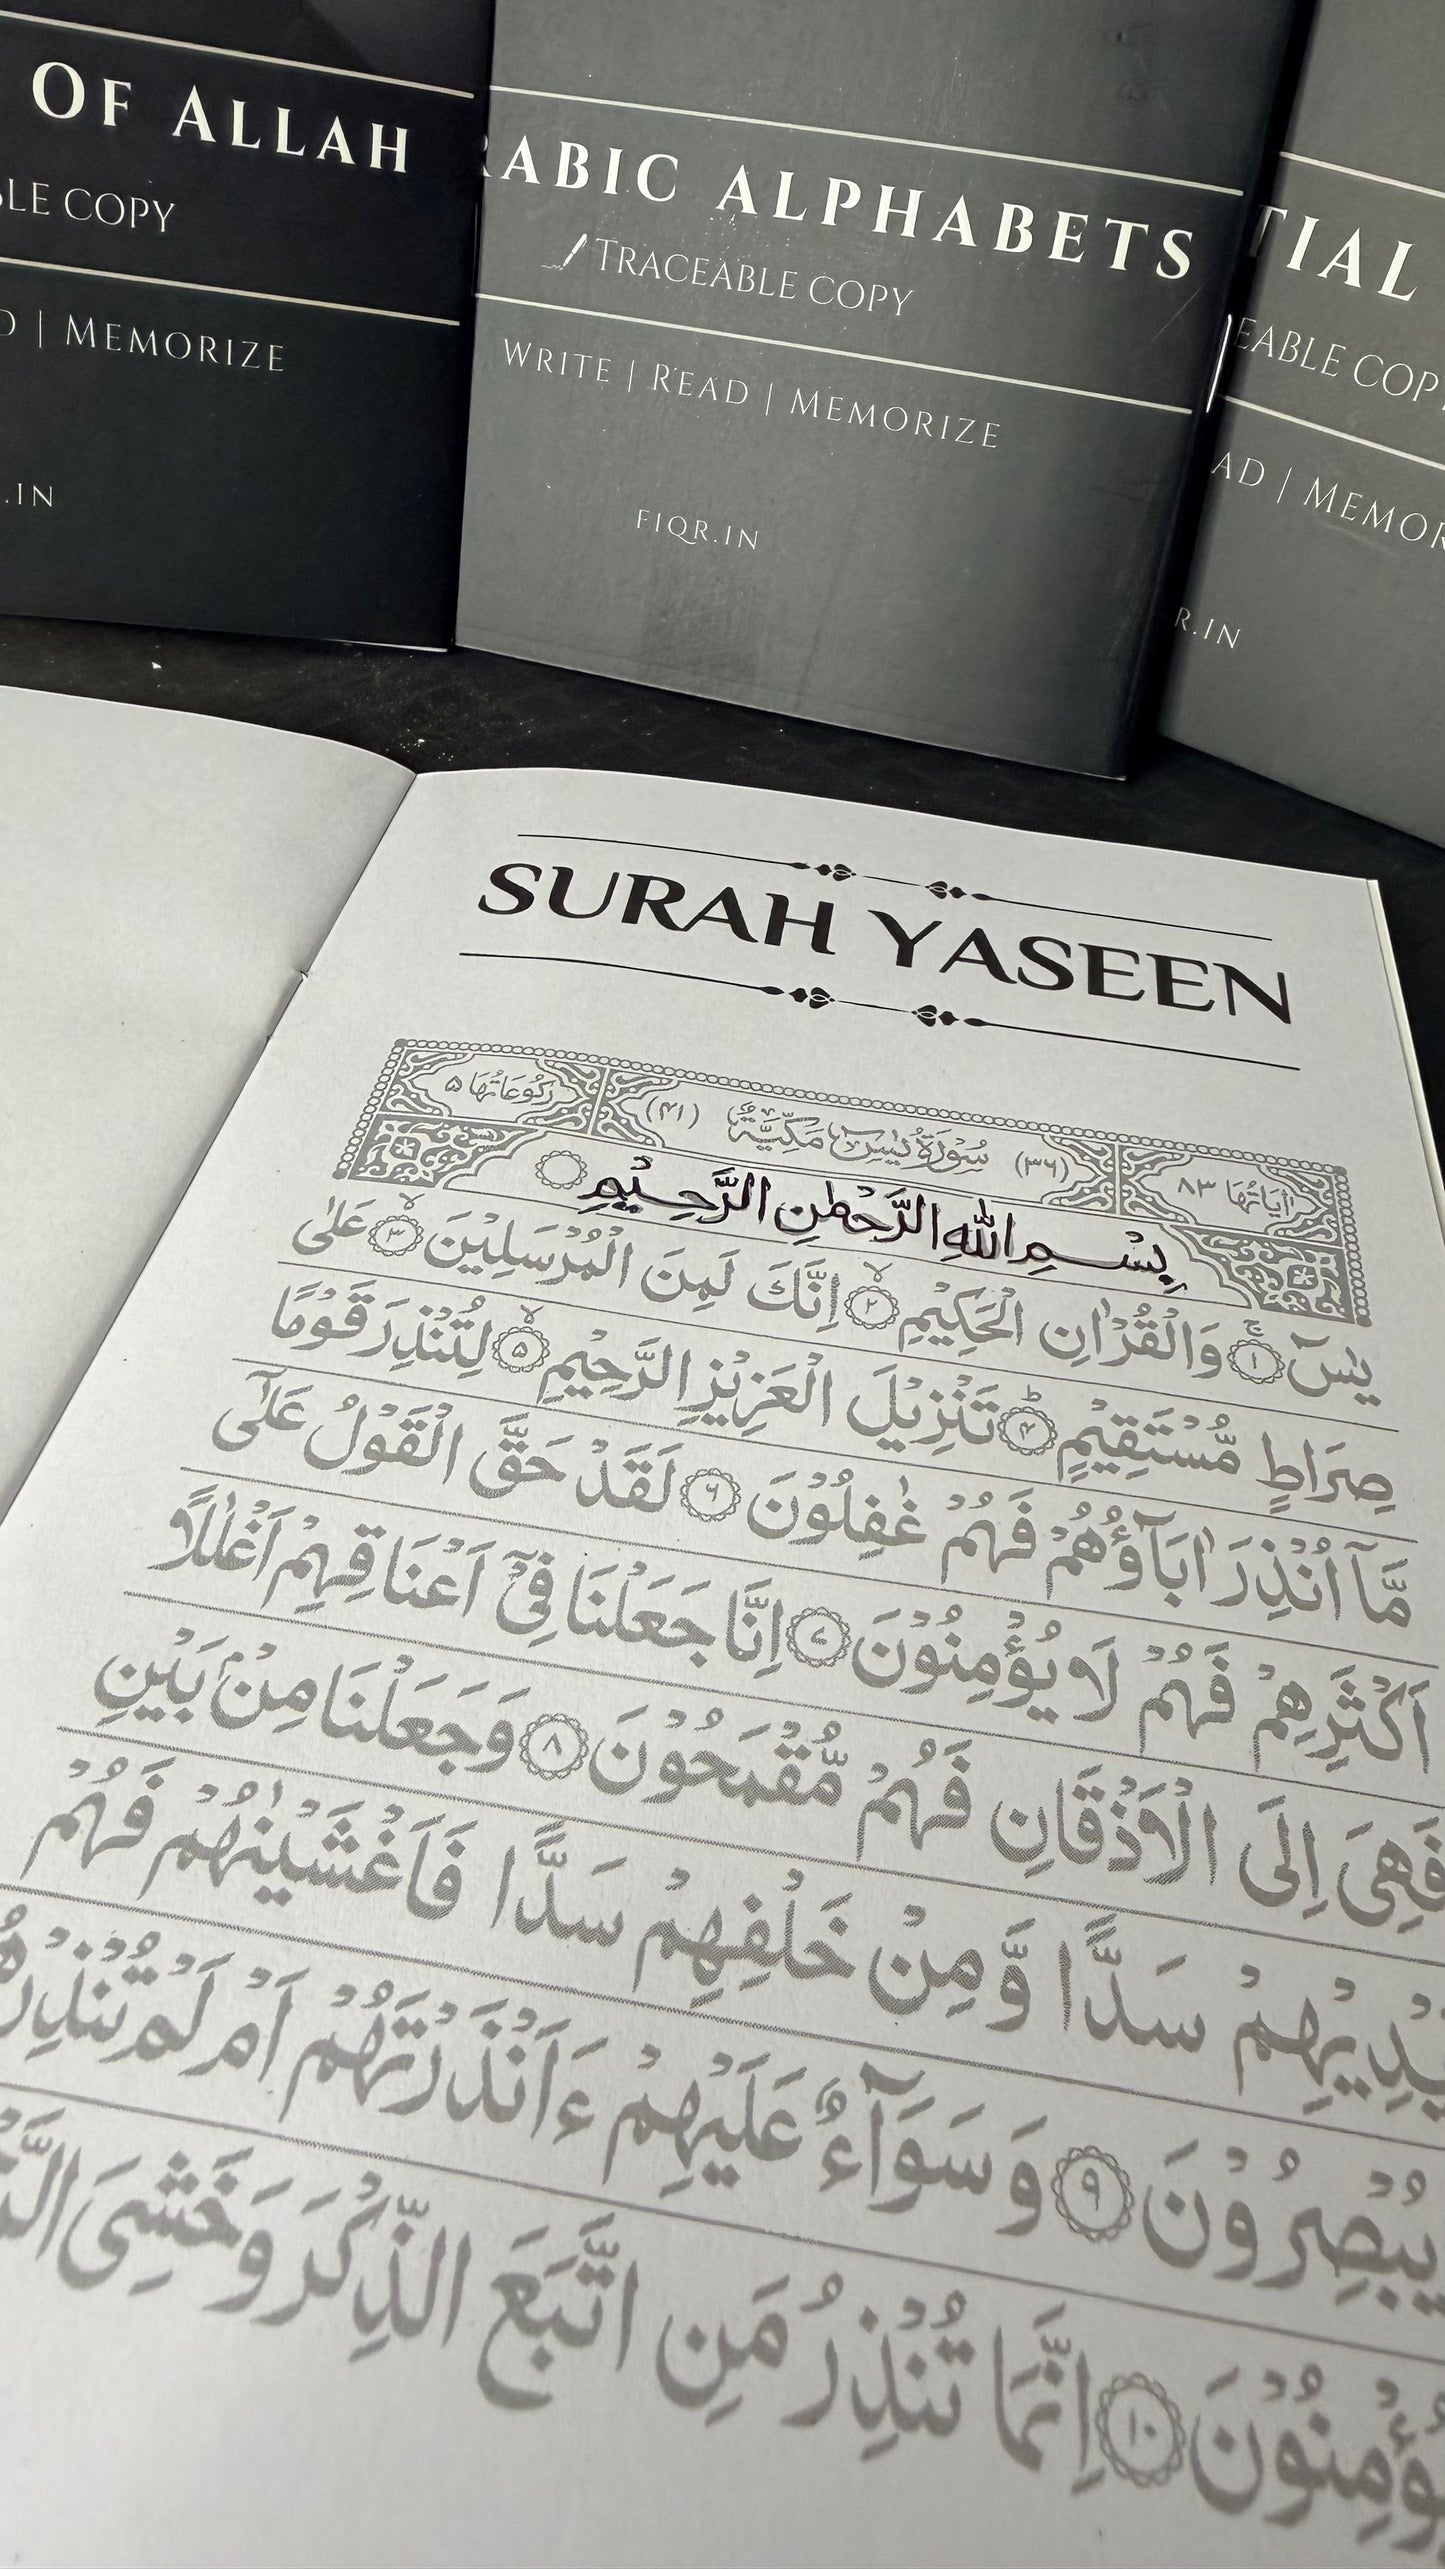 OF ALLAH
COPY
MEMORIZE
.IN
ARABIC ALPHABETS
TRACEABLE COPY
WRITE | READ | MEMORIZE
FIQR.IN
TIAL
EABLE COP
AD | MEMOR
R.IN
SURAH YASEEN
اٰيَاتُهَا ٨٣ (٣٦) سُوْرَةُ يٰسٓ مَكِّيَّةٌ (٤١) رُكُوْعَاتُهَا ٥
بِسْمِ اللّٰهِ الرَّحْمٰنِ الرَّحِيْمِ
يٰسٓ ۚ ١ وَالْقُرْاٰنِ الْحَكِيْمِ ۙ ٢ اِنَّكَ لَمِنَ الْمُرْسَلِيْنَ ۙ ٣ عَلٰى
صِرَاطٍ مُّسْتَقِيْمٍ ؕ ٤ تَنْزِيْلَ الْعَزِيْزِ الرَّحِيْمِ ۙ ٥ لِتُنْذِرَ قَوْمًا
مَّآ اُنْذِرَ اٰبَآؤُهُمْ فَهُمْ غٰفِلُوْنَ ٦ لَقَدْ حَقَّ الْقَوْلُ عَلٰٓى
اَكْثَرِهِمْ فَهُمْ لَا يُؤْمِنُوْنَ ٧ اِنَّا جَعَلْنَا فِيْٓ اَعْنَاقِهِمْ اَغْلٰلًا
فَهِىَ اِلَى الْاَذْقَانِ فَهُمْ مُّقْمَحُوْنَ ٨ وَجَعَلْنَا مِنْۢ بَيْنِ
يْدِيْهِمْ سَدًّا وَّمِنْ خَلْفِهِمْ سَدًّا فَاَغْشَيْنٰهُمْ فَهُمْ
يُبْصِرُوْنَ ٩ وَسَوَآءٌ عَلَيْهِمْ ءَاَنْذَرْتَهُمْ اَمْ لَمْ تُنْذِرْهُ
يُؤْمِنُوْنَ ١٠ اِنَّمَا تُنْذِرُ مَنِ اتَّبَعَ الذِّكْرَ وَخَشِىَ